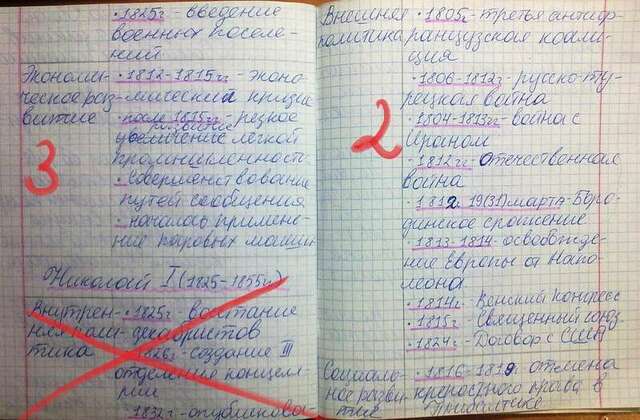 • 1825г - введение
военных поселе-
ний
Экономи- • 1812-1815гг - эконо-
ческое раз- мический кризис
витие • после 1815г - резкое
развитие
увеличение лёгкой
промышленности
• Совершенствование
путей сообщения
• началось примене-
ние паровых машин
3
Николай I (1825-1855гг)
Внутрен- • 1825г - восстание
няя поли- декабристов
тика • 1826г - создание III
отделения канцеля-
рии
• 1832г - опубликова-
Внешняя • 1805г - третья антиф-
политика ранцузская коали-
ция
• 1806-1812г - русско-ту-
рецкая война
• 1804-1813гг - война с
Ираном
• 1812гг - Отечественная
война
• 1812 19(31) марта - Боро-
динское сражение
• 1813-1814 - освобожде-
ние Европы от Напо-
леона
• 1814г - Венский Конгресс
• 1815г - Священный союз
• 1824г - Договор с США
2
Социаль- • 1816-1819г отмена
ное развит крепостного права в
тие Прибалтике